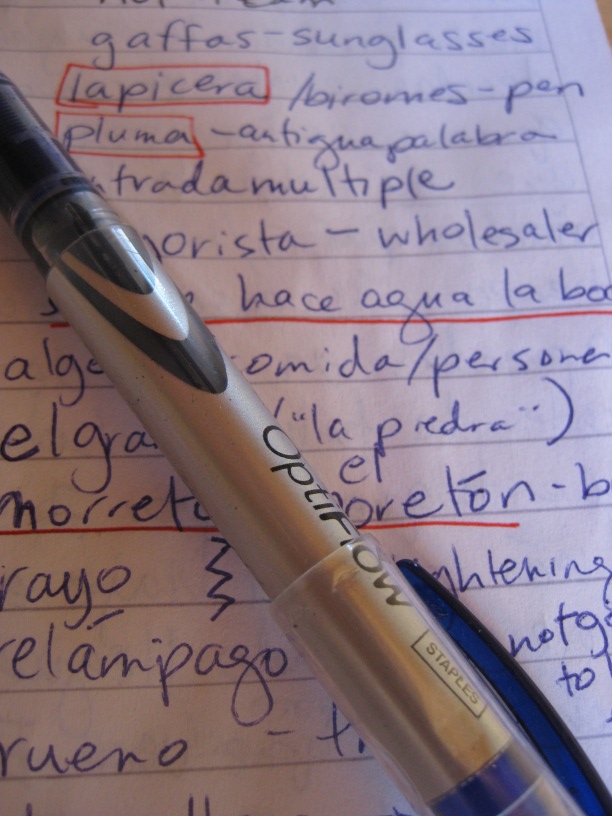 gaffas - sunglasses
lapicera /biromes - pen
pluma - antigua palabra
trada multiple
orista - wholesaler
hace agua la bo
alg omida/persona
el gra ("la piedra")
el
morret oretón - b
rayo ightening
relámpago notg
to
rueno - t
OptiFlow
STAPLES